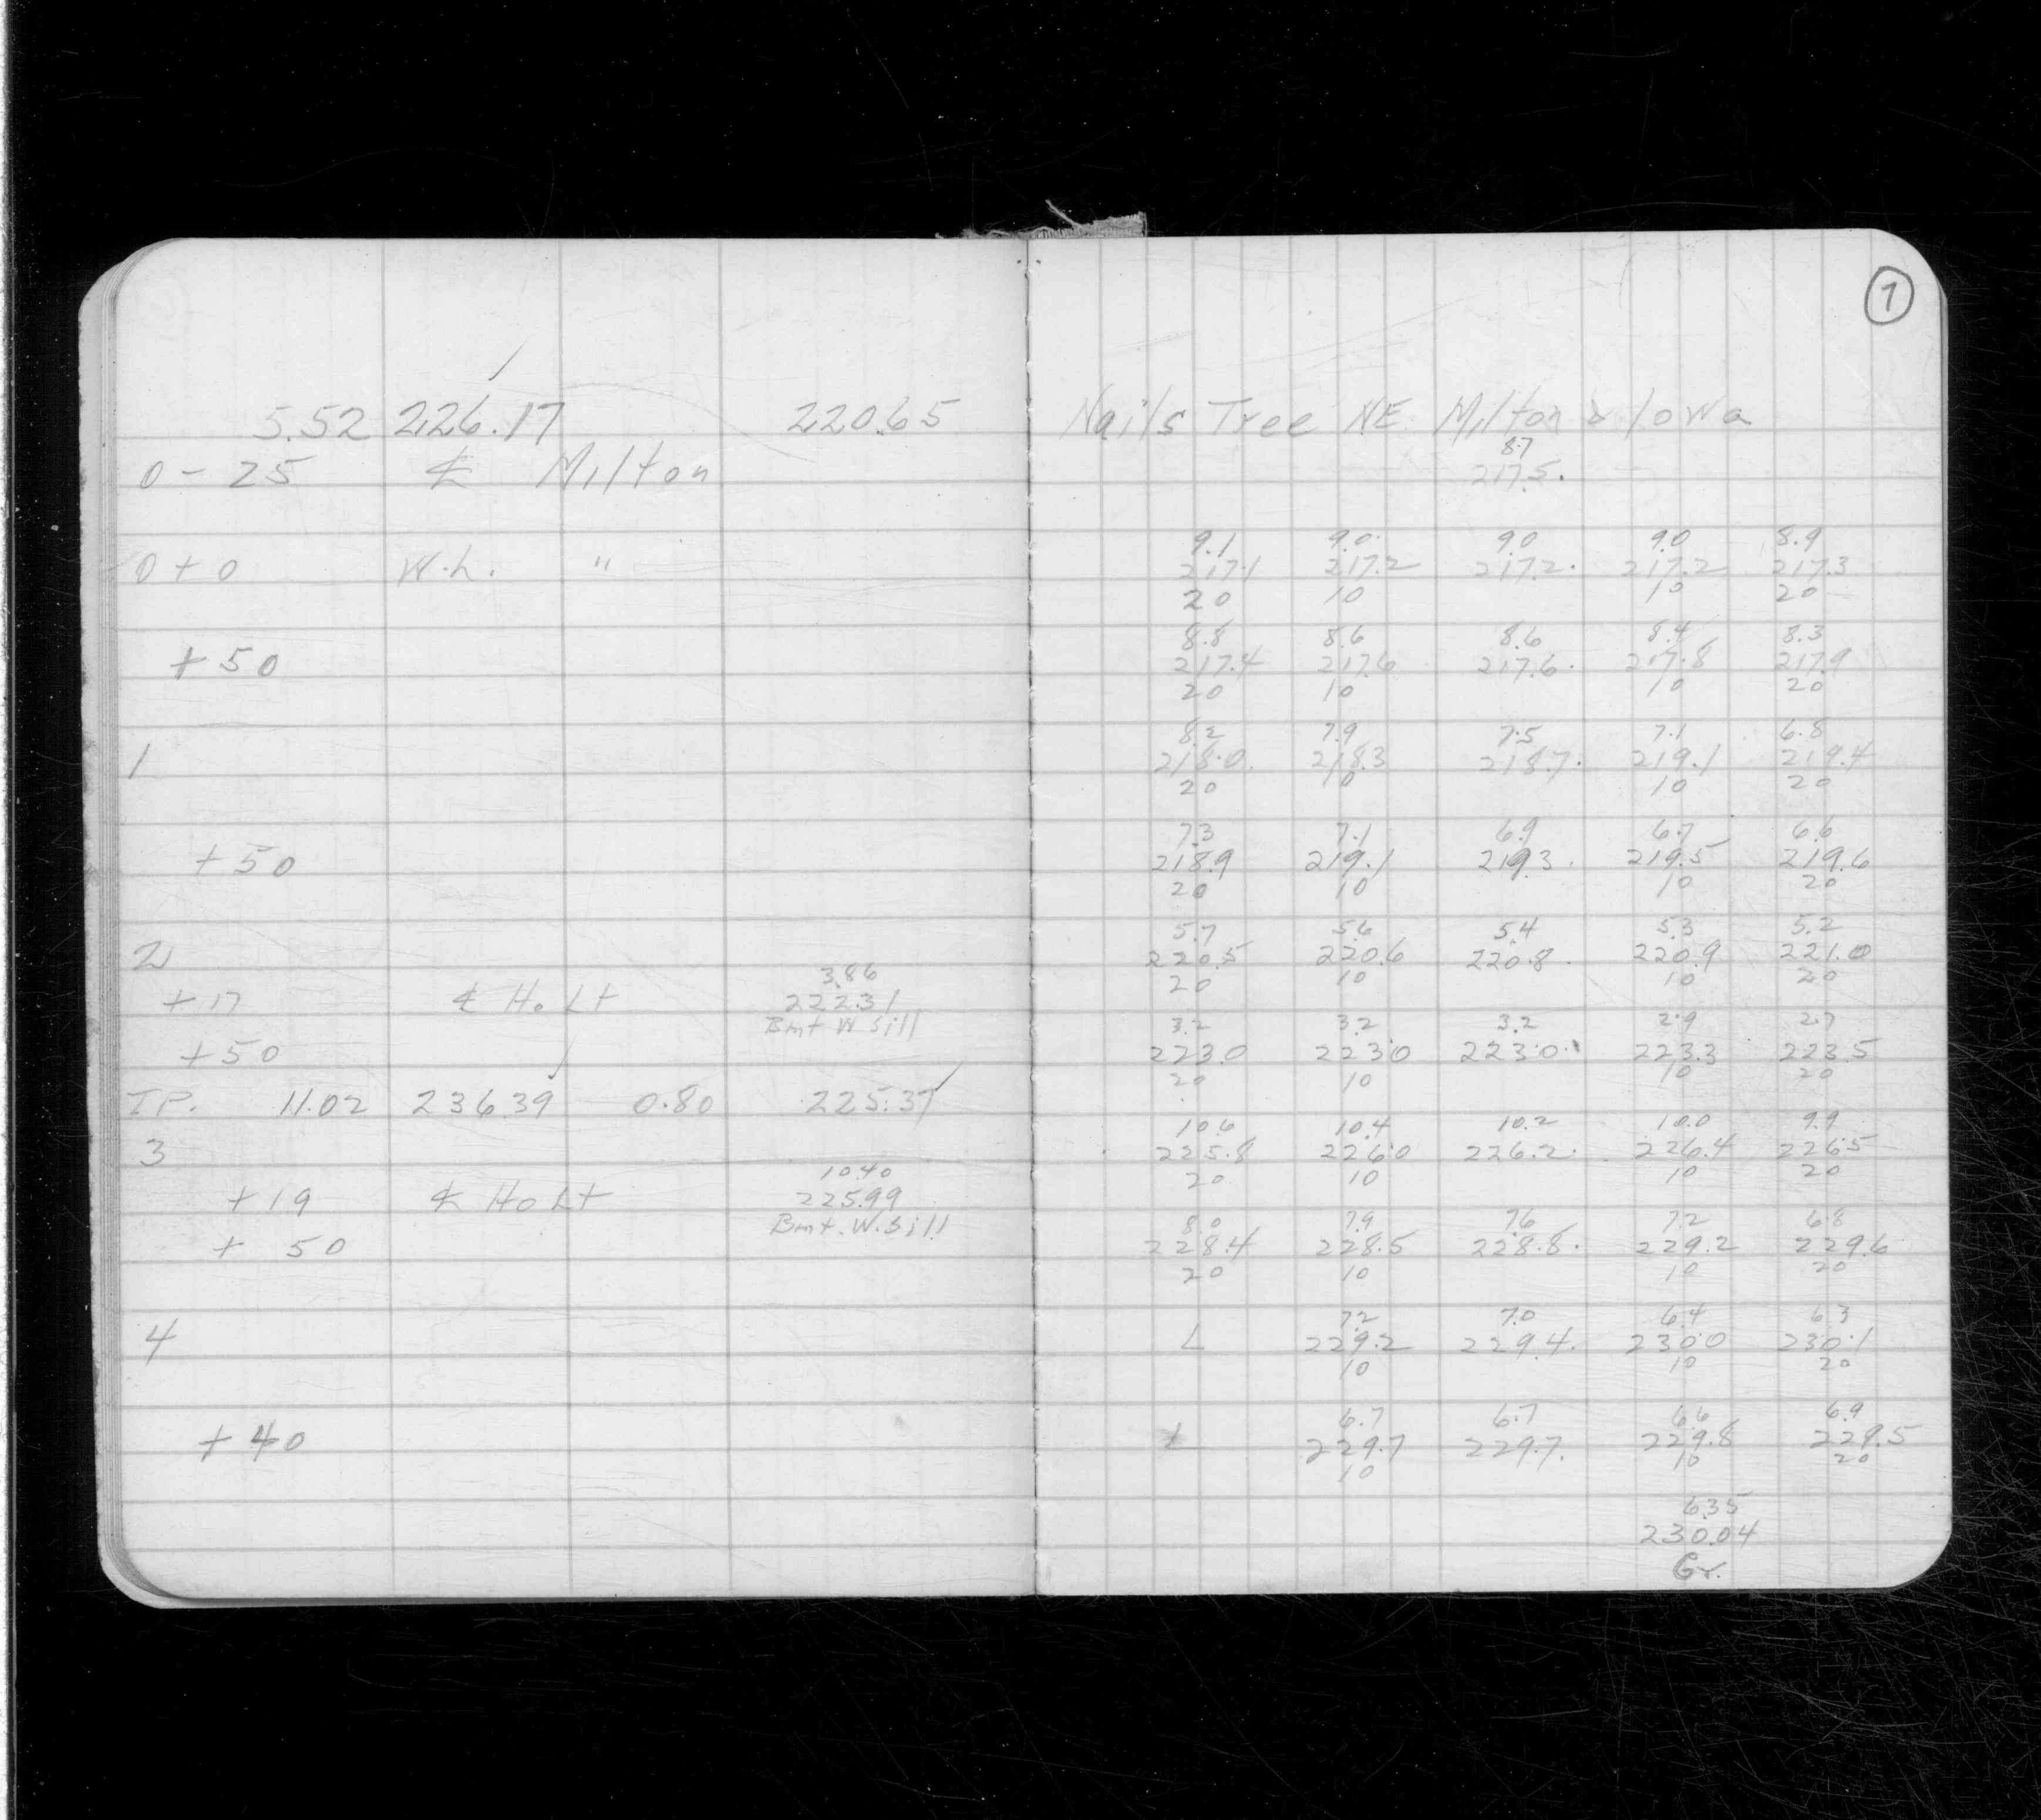 7
5.52 226.17 220.65 Nails Tree NE Milton & Iowa
8.7
0 - 25 ℄ Milton 217.5
9.1 9.0 9.0 9.0 8.9
0 + 0 W.L. " 217.1 217.2 217.2 217.2 217.3
20 10 10 20
8.8 8.6 8.6 8.4 8.3
+ 50 217.4 217.6 217.6 217.8 217.9
20 10 10 20
8.2 7.9 7.5 7.1 6.8
1 218.0 218.3 218.7 219.1 219.4
20 10 10 20
7.3 7.1 6.9 6.7 6.6
+ 50 218.9 219.1 219.3 219.5 219.6
20 10 10 20
5.7 5.6 5.4 5.3 5.2
2 220.5 220.6 220.8 220.9 221.0
3.86 20 10 10 20
+ 17 ℄ Ho Lt 222.31
Bmt W Sill 3.2 3.2 3.2 2.9 2.7
+ 50 223.0 223.0 223.0 223.3 223.5
20 10 10 20
T.P. 11.02 236.39 0.80 225.37
10.6 10.4 10.2 10.0 9.9
3 225.8 226.0 226.2 226.4 226.5
10.40 20 10 10 20
+ 19 ℄ Ho Lt 225.99
Bmt. W. Sill 8.0 7.9 7.6 7.2 6.8
+ 50 228.4 228.5 228.8 229.2 229.6
20 10 10 20
7.2 7.0 6.4 6.3
4 L 229.2 229.4 230.0 230.1
10 10 20
6.7 6.7 6.6 6.9
+ 40 L 229.7 229.7 229.8 229.5
10 10 20
6.35
230.04
Gr.